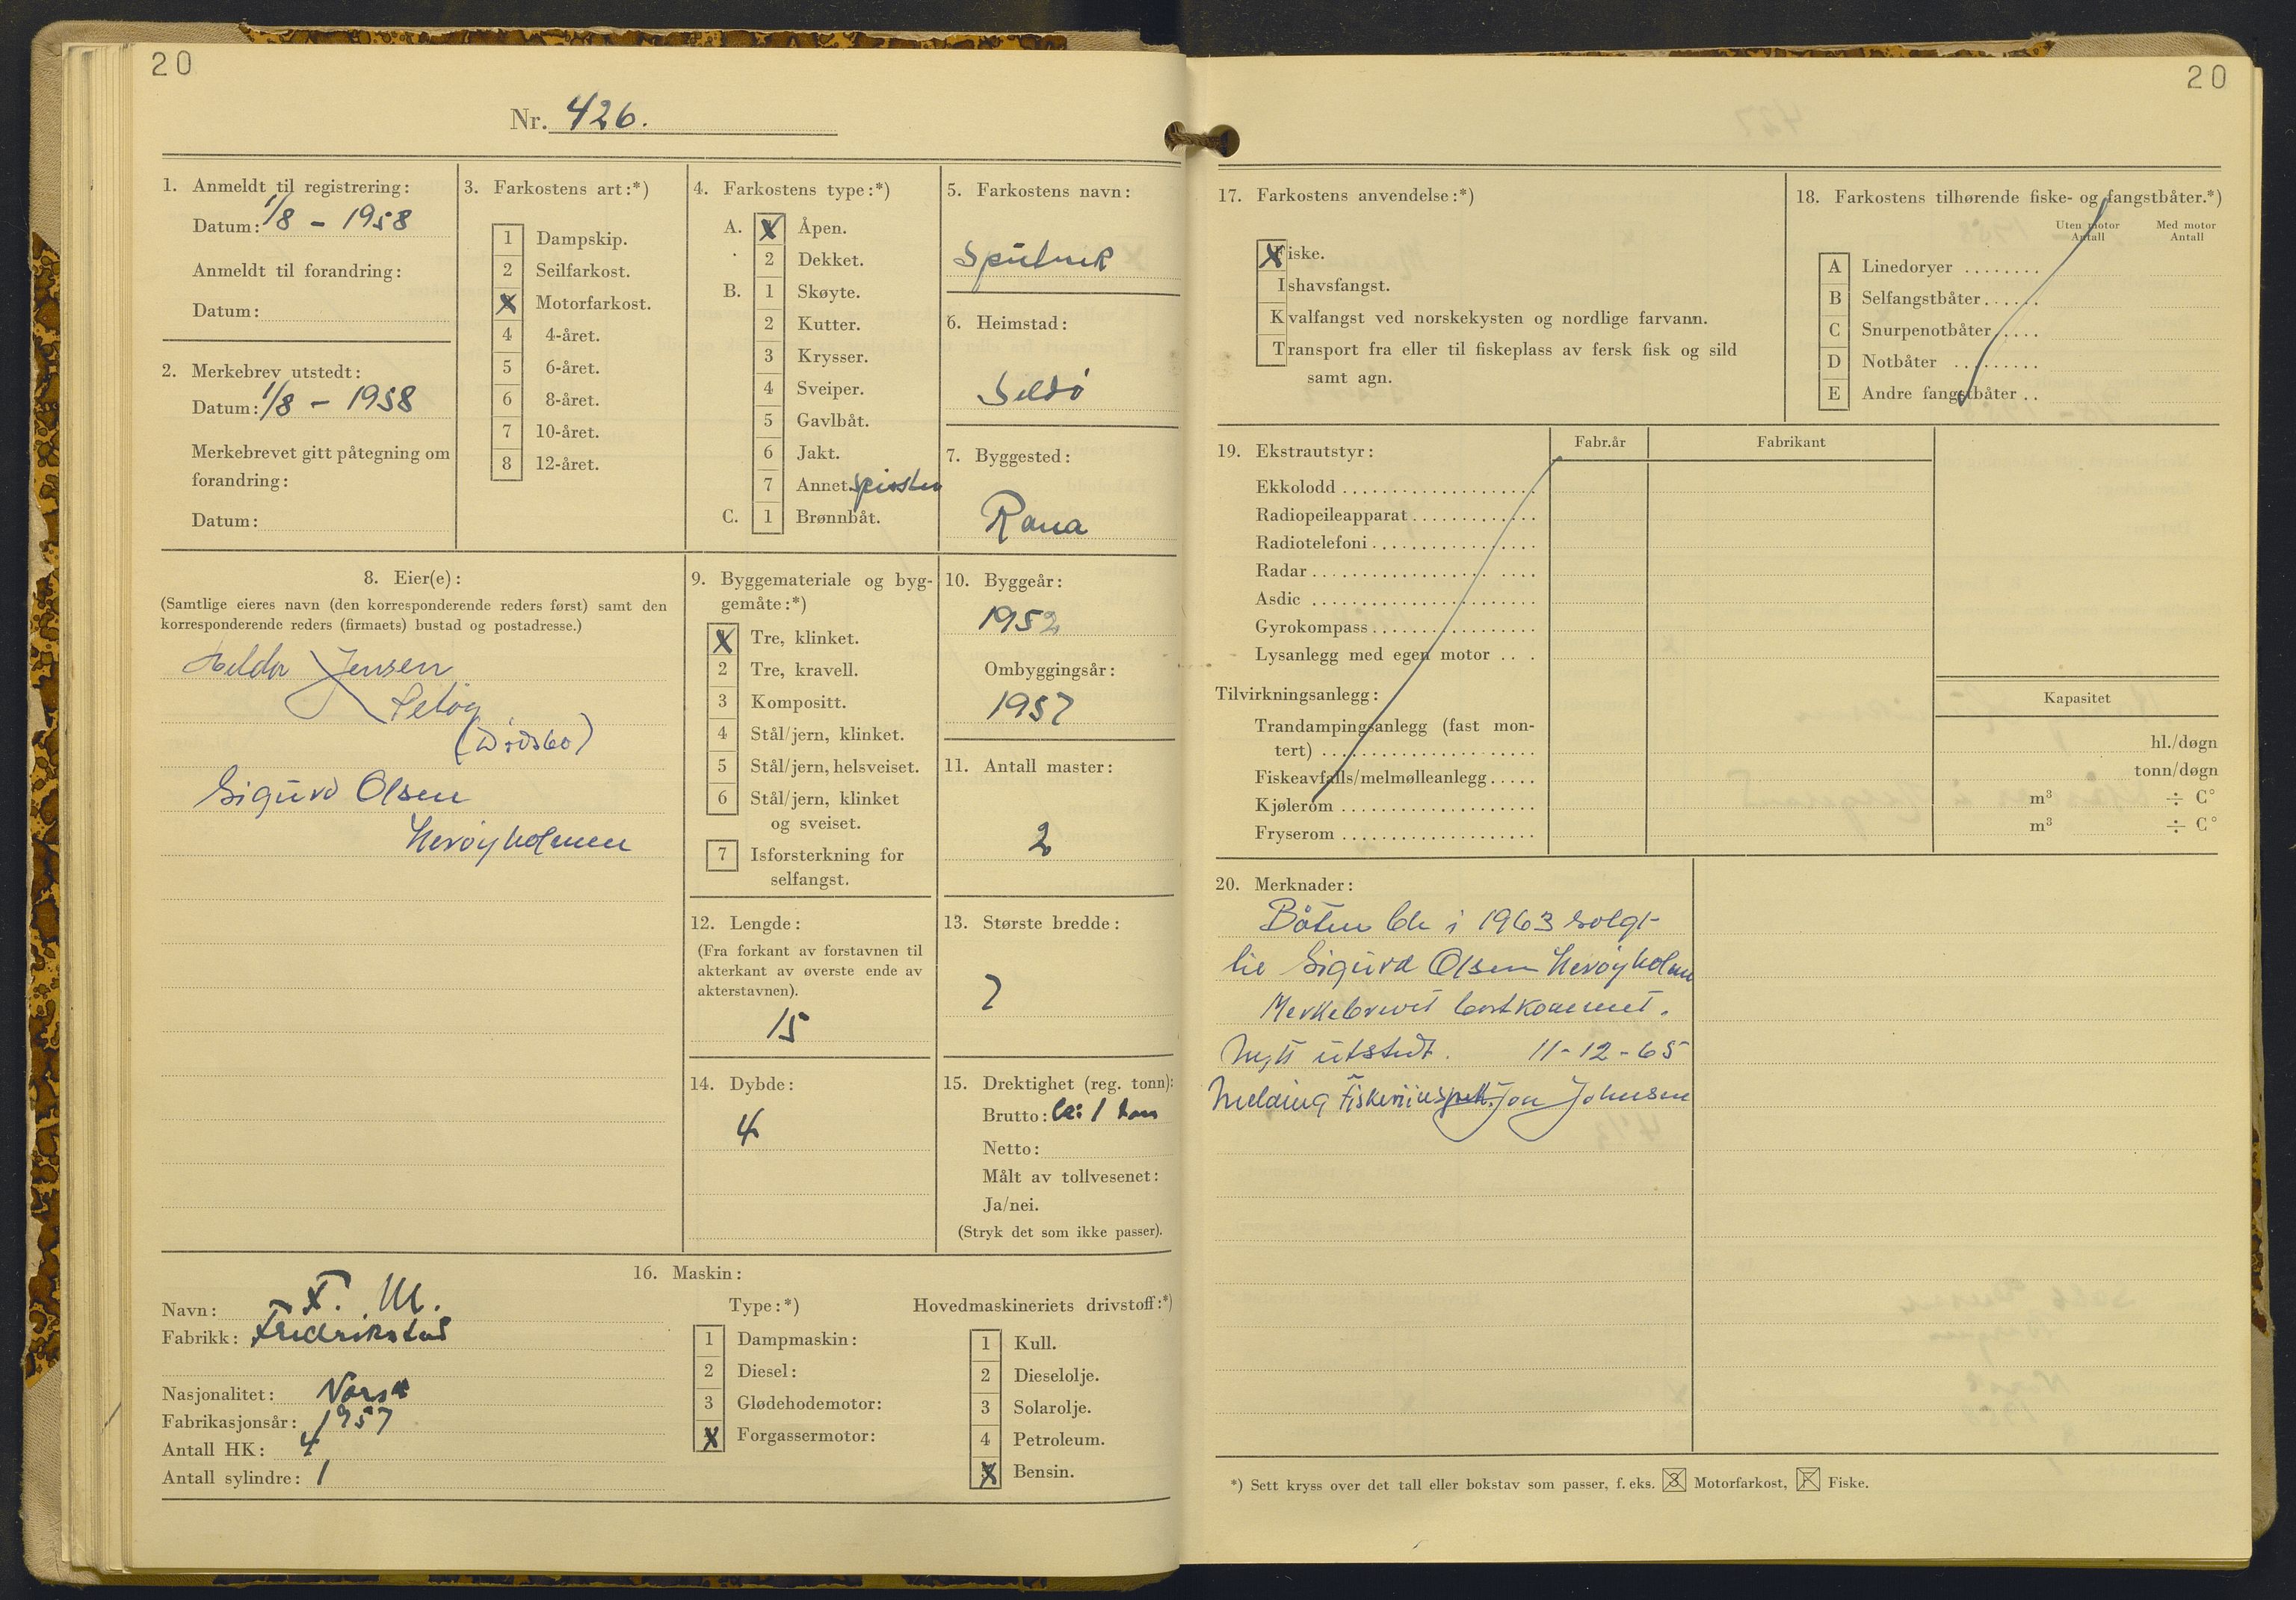 20
Nr. 426.
1. Anmeldt til registrering:
Datum: 1/8 - 1958
Anmeldt til forandring:
Datum:
2. Merkebrev utstedt:
Datum: 1/8 - 1958
Merkebrevet gitt påtegning om
forandring:
Datum:
3. Farkostens art:*)
1 Dampskip.
2 Seilfarkost.
X Motorfarkost.
4 4-året.
5 6-året.
6 8-året.
7 10-året.
8 12-året.
4. Farkostens type:*)
A. X Åpen.
2 Dekket.
B. 1 Skøyte.
2 Kutter.
3 Krysser.
4 Sveiper.
5 Gavlbåt.
6 Jakt.
7 Annet
C. 1 Brønnbåt.
5. Farkostens navn:
Sputnik
6. Heimstad:
7. Byggested:
Rana
8. Eier(e):
(Samtlige eieres navn (den korresponderende reders først) samt den
korresponderende reders (firmaets) bustad og postadresse.)
Jensen
Sigurd Olsen
Herøyholmen
9. Byggemateriale og byg-
gemåte:*)
X Tre, klinket.
2 Tre, kravell.
3 Kompositt.
4 Stål/jern, klinket.
5 Stål/jern, helsveiset.
6 Stål/jern, klinket
og sveiset.
7 Isforsterkning for
selfangst.
10. Byggeår:
1952
Ombyggingsår:
1957
11. Antall master:
2
12. Lengde:
(Fra forkant av forstavnen til
akterkant av øverste ende av
akterstavnen).
15
13. Største bredde:
14. Dybde:
4
15. Drektighet (reg. tonn):
Brutto: ca: 1 tonn
Netto:
Målt av tollvesenet:
Ja/nei.
(Stryk det som ikke passer).
16. Maskin:
Navn: F. M.
Fabrikk: Fredrikstad
Nasjonalitet: Norsk
Fabrikasjonsår: 1957
Antall HK: 4
Antall sylindre: 1
Type:*)
1 Dampmaskin:
2 Diesel:
3 Glødehodemotor:
X Forgassermotor:
Hovedmaskineriets drivstoff:*)
1 Kull.
2 Dieselolje.
3 Solarolje.
4 Petroleum.
X Bensin.
20
17. Farkostens anvendelse:*)
X Fiske.
Ishavsfangst.
Kvalfangst ved norskekysten og nordlige farvann.
Transport fra eller til fiskeplass av fersk fisk og sild
samt agn.
18. Farkostens tilhørende fiske- og fangstbåter.*)
Uten motor Med motor
Antall Antall
A Linedoryer ........
B Selfangstbåter......
C Snurpenotbåter.....
D Notbåter .........
E Andre fangstbåter ..
19. Ekstrautstyr: Fabr.år Fabrikant
Ekkolodd ....................
Radiopeileapparat.............
Radiotelefoni.................
Radar.......................
Asdic .......................
Gyrokompass.................
Lysanlegg med egen motor ....
Tilvirkningsanlegg: Kapasitet
Trandampingsanlegg (fast mon-
tert) ...................... hl./døgn
Fiskeavfalls/melmølleanlegg..... tonn/døgn
Kjølerom .................... m³ ÷ C°
Fryserom .................... m³ ÷ C°
20. Merknader:
Båten ble i 1963 solgt
til Sigurd Olsen Herøyholmen
Merkebrevet bortkommet.
Nytt utstedt. 11-12-65
Melding Fiskeriinspektør Jon Johnsen
*) Sett kryss over det tall eller bokstav som passer, f. eks. 3 Motorfarkost, F Fiske.